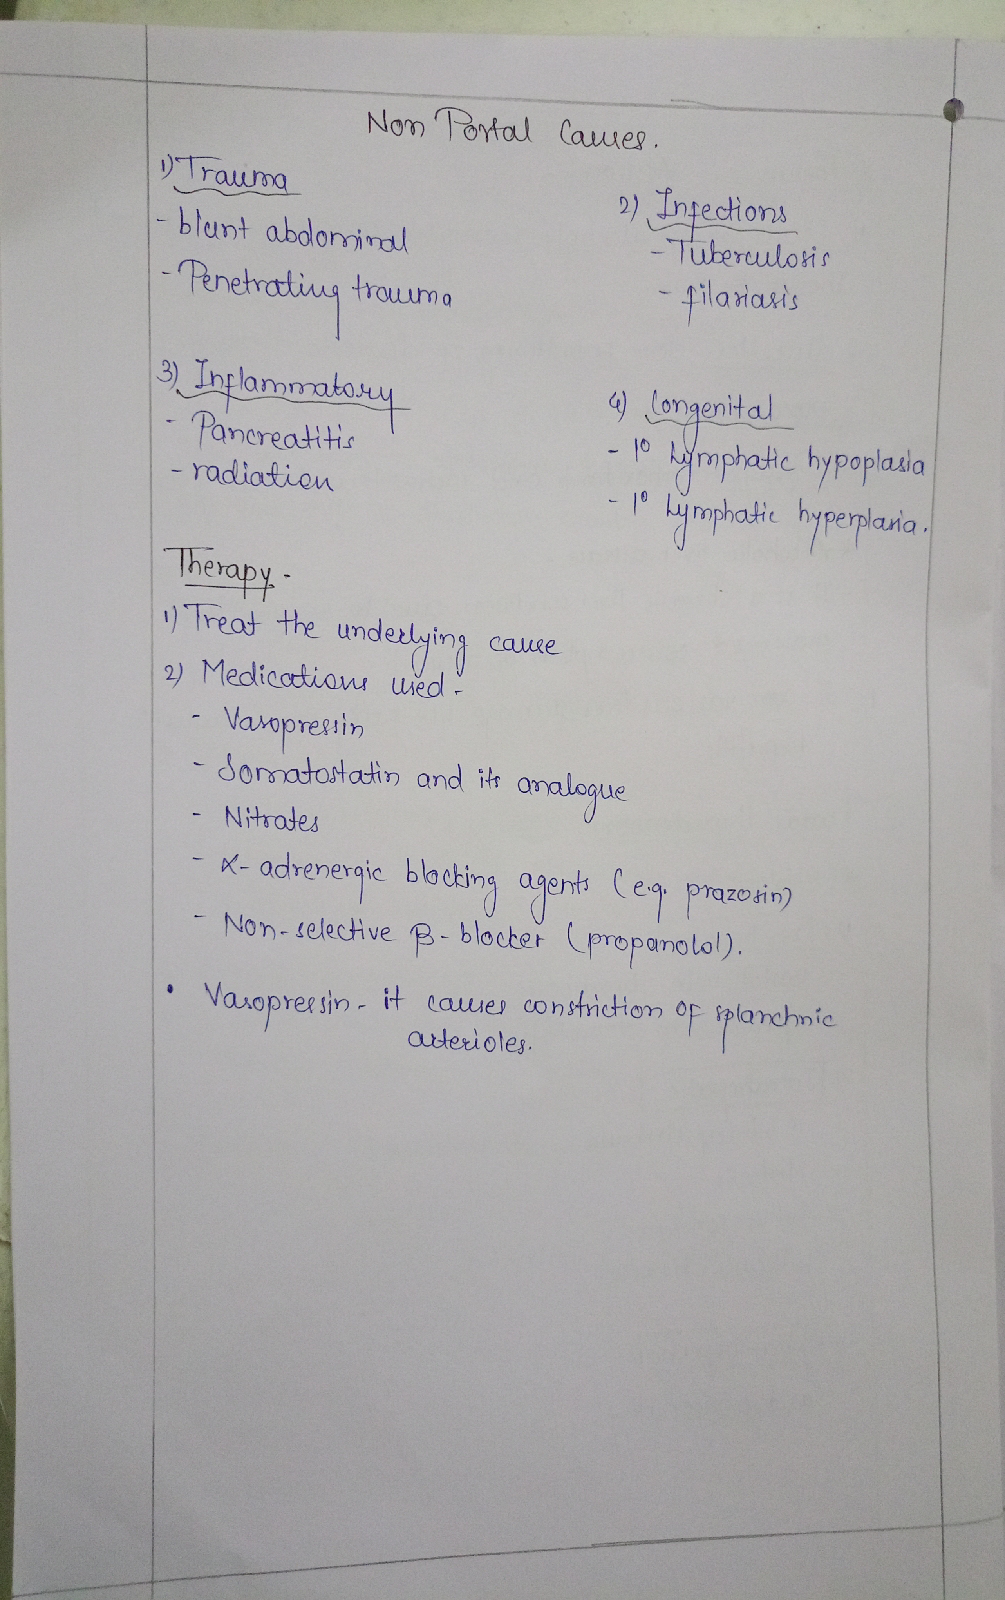 Non Portal Causes.
1) Trauma
- blunt abdominal
- Penetrating trauma
2) Infections
- Tuberculosis
- filariasis
3) Inflammatory
- Pancreatitis
- radiation
4) Congenital
- 1° Lymphatic hypoplasia
- 1° Lymphatic hyperplasia.
Therapy -
1) Treat the underlying cause
2) Medications used -
- Vasopressin
- Somatostatin and its analogue
- Nitrates
- α- adrenergic blocking agents (e.g. prazosin)
- Non-selective β-blocker (propanolol).
• Vasopressin - it causes constriction of splanchnic
arterioles.